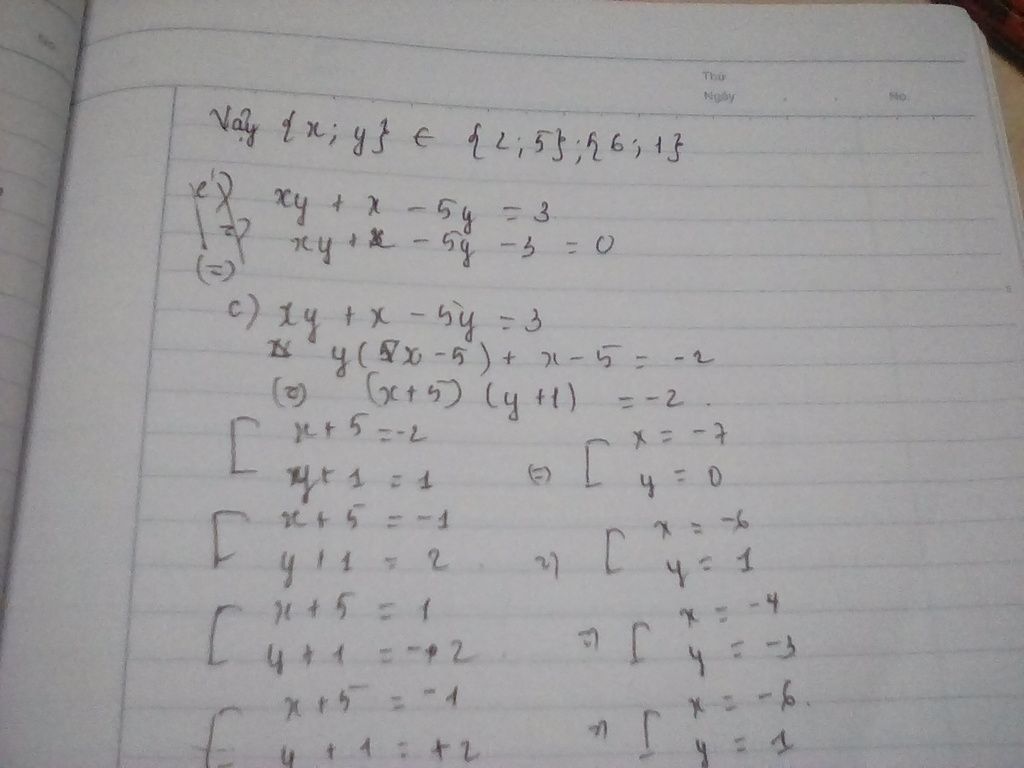 Thứ
Ngày No.
Vậy {x; y} ∈ {2; 5}; {6; 1}
xy + x - 5y = 3
xy + x - 5y - 3 = 0
(=)
c) xy + x - 5y = 3
y(x - 5) + x - 5 = -2
(=) (x + 5) (y + 1) = -2.
[ x + 5 = -2 [ x = -7
y + 1 = 1 (=) y = 0
[ x + 5 = -1 [ x = -6
y + 1 = 2 y = 1
[ x + 5 = 1 [ x = -4
y + 1 = -2 =) y = -3
[ x + 5 = -1 [ x = -6.
y + 1 = +2 y = 1